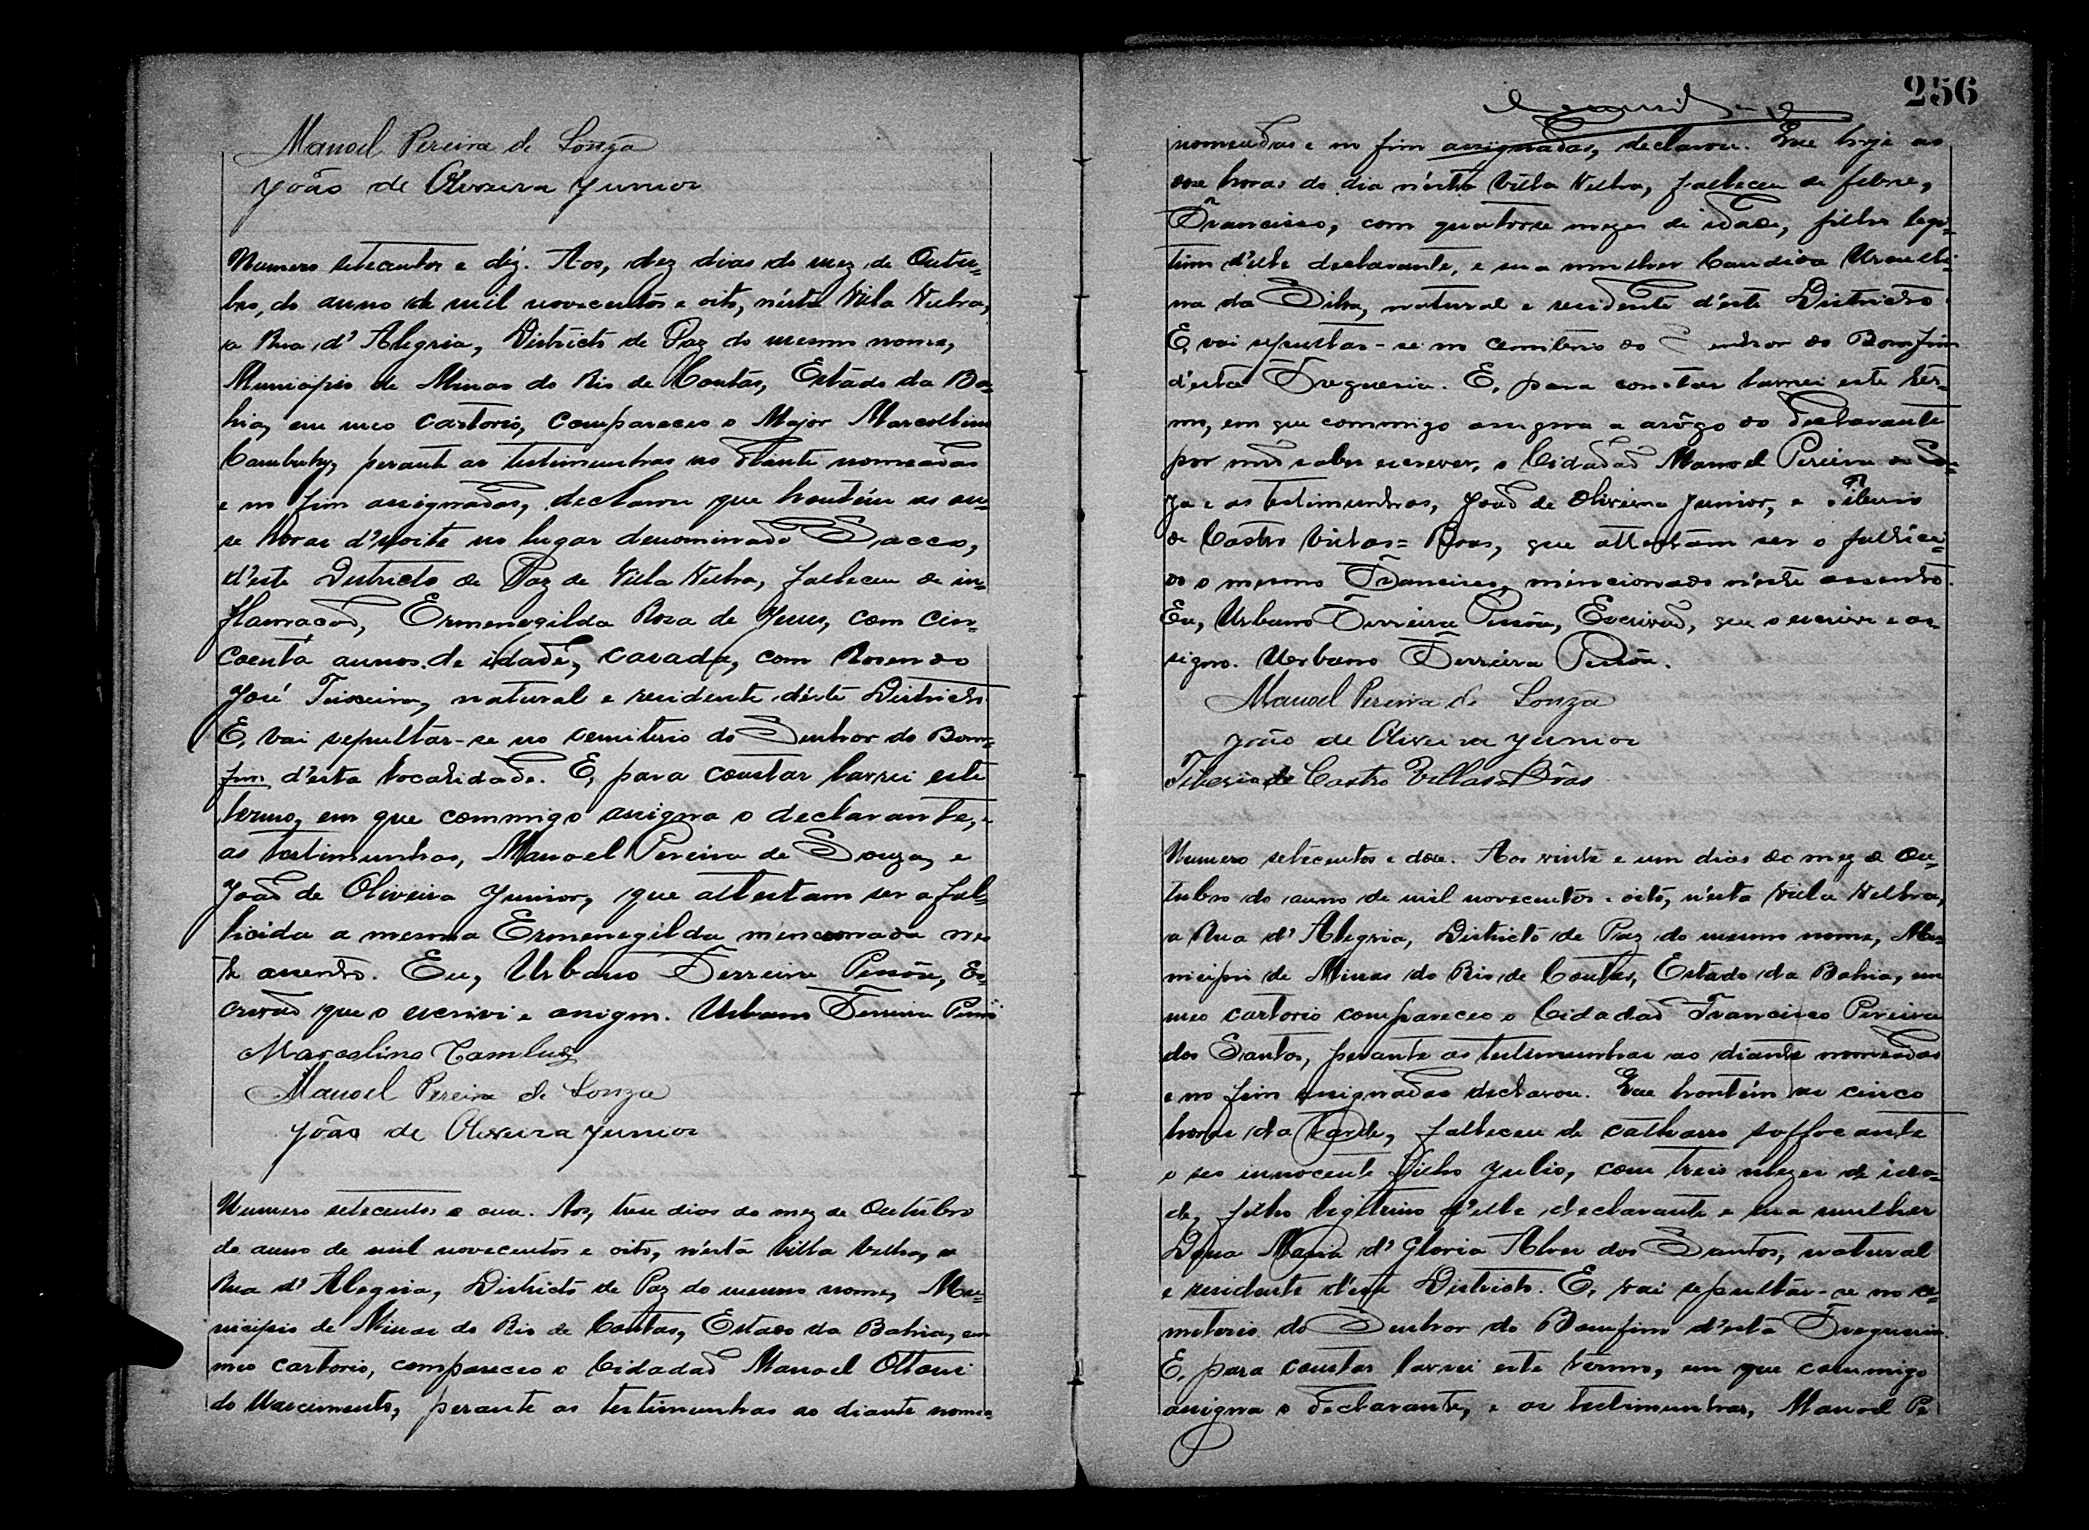 Manoel Pereira de Souza
João de Oliveira Junior
Numero setecentos e déz. Aos, dez dias do mez de Outu=
bro, do anno de mil novecentos e oito, n'ésta Villa Velha,
a Rua d'Alegria, Districto de Paz do mesmo nome,
Municipio de Minas do Rio de Contas, Estado da Ba=
hia, em meo cartorio, compareceo o Major Marcollino
Cambuhy, perante as testimunhas ao diante nomeadas
e no fim assignadas, declarou que hontém as on=
se horas d'noite no lugar denominado Sacco,
d'este Districto de Paz de Villa Velha, falleceu de in=
flamação, Ermenegilda Roza de Jesus, com cin=
coenta annos de idade, casada, com Rosendo
José Teixeira, natural e residente d'éste Districto
E, vai sepultar-se no cemiterio do Senhor do Bom=
fim d'esta localidade. E, para constar lavrei este
termo, em que commigo assigna o declarante, e
as testimunhas, Manoel Pereira de Souza, e
João de Oliveira Junior, que attestam ser a fal=
licida a mesma Ermenegilda mencionada nes
te assento. Eu, Urbano Ferreira Pessôa, Es=
crivão que o escrivi e assigno. Urbano Ferreira Pessôa
Marcolino Cambuhy
Manoel Pereira de Souza
João de Oliveira Junior
Numero setecentos e onse. Aos, trese dias do mez de Outubro
do anno de mil novecentos e oito, n'ésta Villa Velha, a
Rua d'Alegria, Districto de Paz do mesmo nome, Mu=
nicipio de Minas do Rio de Contas, Estado da Bahia, em
meo cartorio, compareceo o Cidadão Manoel Ottoni
do Nascimento, perante as testimunhas ao diante nomea=
256
nomeadas e no fim assignadas, declarou. Que hoje as
dose horas do dia n'ésta Villa Velha, falleceu de febre,
Francisco, com quatorse mezes de idade, filho legi=
timo d'elle declarante, e sua mulher Candida Ursuli=
na da Silva, natural e residente d'éste Districto.
E, vai sepultar-se no cemiterio do Senhor do Bomfim
d'ésta Freguesia. E, para constar lavrei este ter=
mo, em que commigo assigna a arôgo do declarante
por não saber escrever, o Cidadão Manoel Pereira de Sou=
za e as testimunhas, João de Oliveira Junior, e Tiberio
de Castro Villas=Boas, que attestam ser o fallici=
do o mesmo Francisco, mencionado n'éste assento.
Eu, Urbano Ferreira Pessôa, Escrivão, que o escrivi e as=
signo. Urbano Ferreira Pessôa.
Manoel Pereira de Souza
João de Oliveira Junior
Tiberio de Castro Villas Bôas
Numero setecentos e dose. Aos vinte e um dias do mez de Ou=
tubro do anno de mil novecentos e oito, n'ésta Villa Velha,
a Rua d'Alegria, Districto de Paz do mesmo nome, Mu=
nicipio de Minas do Rio de Contas, Estado da Bahia, em
meo cartorio compareceo o Cidadão Francisco Pereira
dos Santos, perante as testimunhas ao diante nomeadas
e no fim assignadas declarou. Que hontém as cinco
horas da tarde, falleceu de catharro soffocante
o seo innocente filho Julio, com treis mezes de ida=
de, filho legitimo d'elle declarante e sua mulher
Dona Maria d'Gloria Alves dos Santos, natural
e residente d'éste Districto. E, vai sepultar-se no ce=
miterio do Senhor do Bomfim d'ésta Freguesia.
E, para constar lavrei este termo, em que commigo
assigna o declarante, e as testimunhas, Manoel Pe